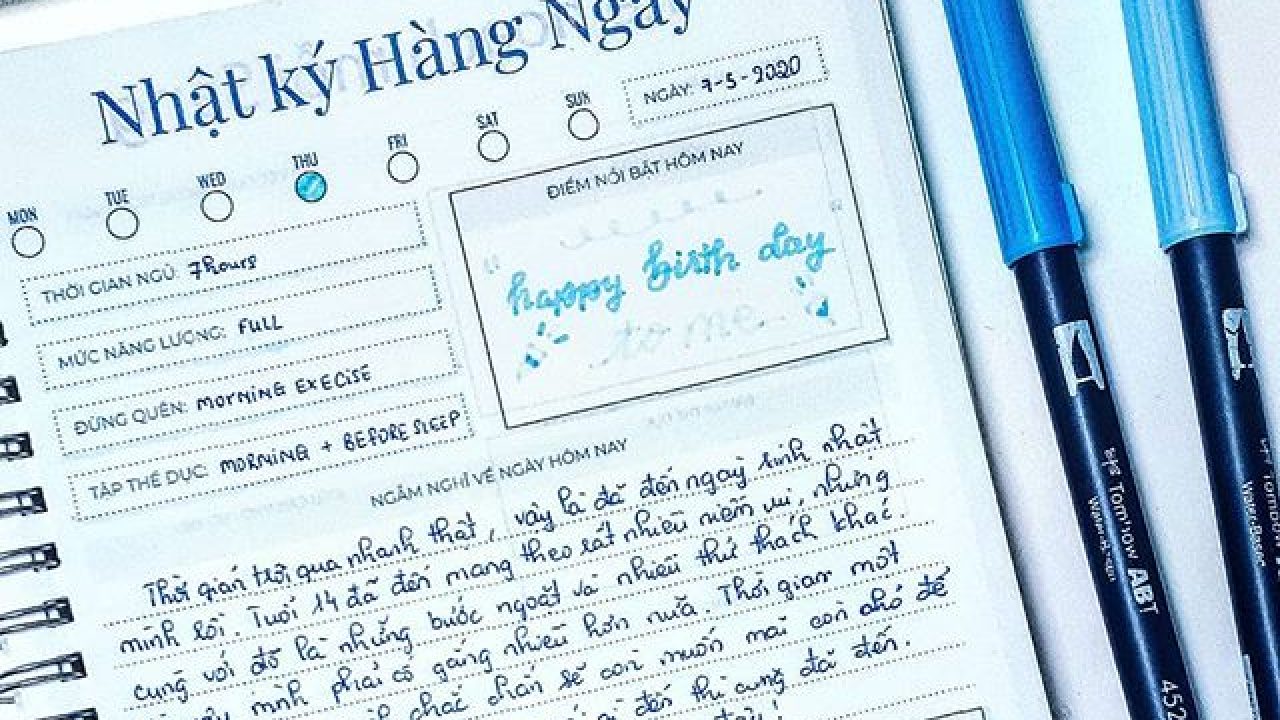 Nhật ký Hàng Ngày
NGÀY: 7-5-2020
MON TUE WED THU FRI SAT SUN
THỜI GIAN NGỦ: 7hours
MỨC NĂNG LƯỢNG: FULL
ĐỪNG QUÊN: MORNING EXECISE
TẬP THỂ DỤC: MORNING + BEFORE SLEEP
ĐIỂM NỔI BẬT HÔM NAY
happy birth day
to me
NGẪM NGHĨ VỀ NGÀY HÔM NAY
Thời gian trôi qua nhanh thật, vậy là đã đến ngày sinh nhật
mình rồi. Tuổi 14 đã đến mang theo rất nhiều niềm vui, nhưng
cùng với đó là những bước ngoặt và nhiều thử thách khác.
mình phải cố gắng nhiều hơn nữa. Thời gian một
chắc chắn sẽ còn muốn mai còn nhỏ để
đến thì cũng đã đến.
Tombow ABT
452